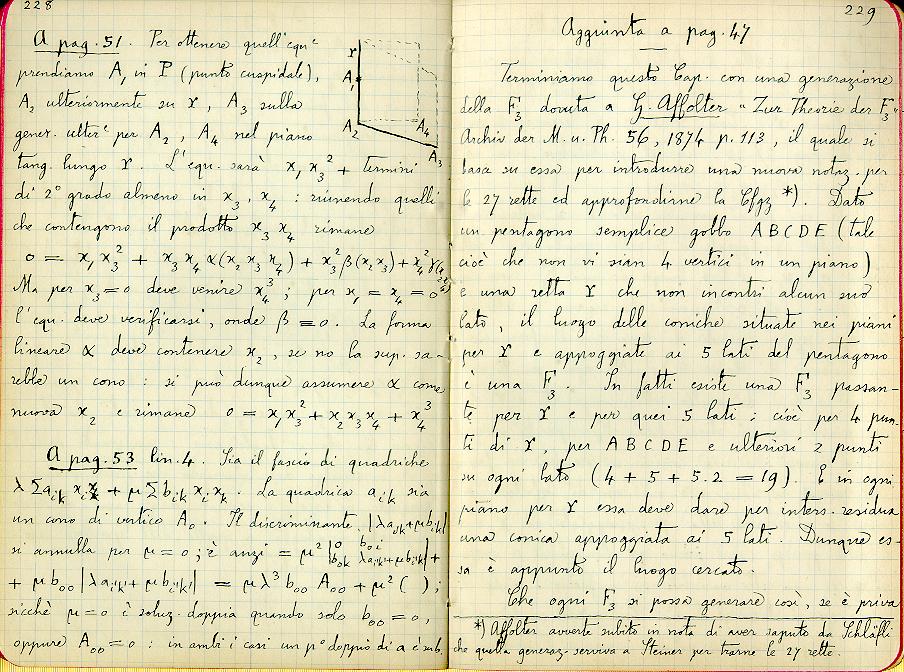 228
A pag. 51. Per ottenere quell'equᵉ
prendiamo A₁ in P (punto cuspidale),
A₂ ulteriormente su r, A₃ sulla
gener. ulterᵉ per A₂, A₄ nel piano
tang. lungo r. L'equ. sarà x₁x₃² + termini
di 2° grado almeno in x₃, x₄ : riunendo quelli
che contengono il prodotto x₃ x₄ rimane
0 = x₁x₃² + x₃x₄ α(x₂x₃x₄) + x₃² β(x₂x₃) + x₄² γ(x₂x₄)
Ma per x₃=0 deve venire x₄³ ; per x₁ = x₄ = 0
l'equ. deve verificarsi, onde β ≡ 0. La forma
lineare α deve contenere x₂, se no la sup. sa-
rebbe un cono : si può dunque assumere α come
nuova x₂ e rimane 0 = x₁x₃² + x₂x₃x₄ + x₄³
A pag. 53 lin. 4. Sia il fascio di quadriche
λ Σaᵢₖ xᵢxₖ + μ Σbᵢₖ xᵢxₖ. La quadrica aᵢₖ sia
un cono di vertice A₀. Il discriminante |λaᵢₖ+μbᵢₖ|
si annulla per μ = 0 ; è anzi = μ² |0 b₀ᵢ
bₒₖ λaᵢ'ₖ'+μbᵢ'ₖ'| +
+ μb₀₀ |λaᵢ'ₖ'+μbᵢ'ₖ'| = μλ³ b₀₀ A₀₀ + μ² ( ) ;
sicchè μ=0 è soluz. doppia quando solo b₀₀ = 0,
oppure A₀₀=0 : in ambi i casi un pᵒ doppio di a è sub.
r
A₁
A₂
A₄
A₃
229
Aggiunta a pag. 47
Terminiamo questo Cap. con una generazione
della F₃ dovuta a G. Affolter "Zur Theorie der F₃"
Archiv der M. u. Ph. 56, 1874 p. 113, il quale si
basa su essa per introdurre una nuova notaz. per
le 27 rette ed approfondirne la Cfgz *). Dato
un pentagono semplice gobbo ABCDE (tale
cioè che non vi sian 4 vertici in un piano)
e una retta r che non incontri alcun suo
lato, il luogo delle coniche situate nei piani
per r e appoggiate ai 5 lati del pentagono
è una F₃. In fatti esiste una F₃ passan-
te per r e per quei 5 lati ; cioè per 4 pun-
ti di r, per ABCDE e ulteriori 2 punti
su ogni lato (4 + 5 + 5.2 = 19). E in ogni
piano per r essa deve dare per inters. residua
una conica appoggiata ai 5 lati. Dunque es-
sa è appunto il luogo cercato.
Che ogni F₃ si possa generare così, se è priva
*) Affolter avverte subito in nota di aver saputo da Schläfli
che quella generaz. serviva a Steiner per trarne le 27 rette.